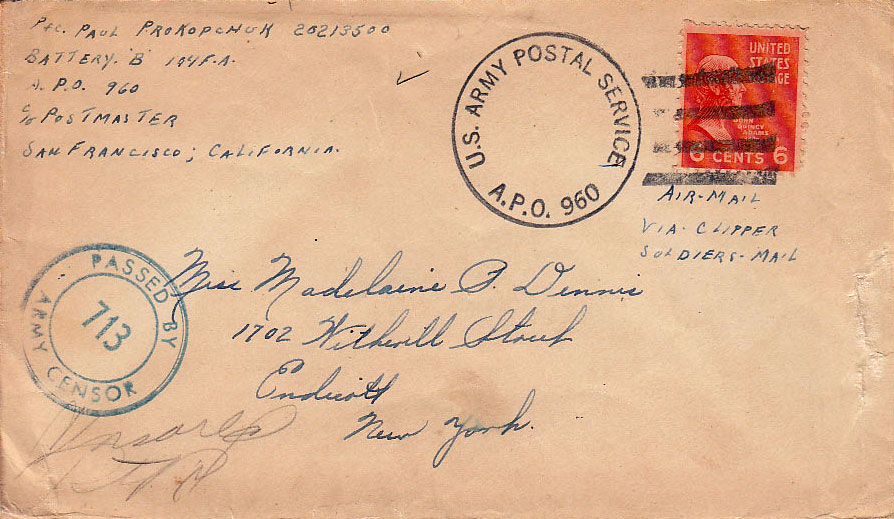 Pfc. PAUL PROKOPCHUK 20213500
BATTERY "B" 104 F.A.
A.P.O. 960
c/o POSTMASTER
SAN FRANCISCO; CALIFORNIA.
U.S. ARMY POSTAL SERVICE
A.P.O. 960
UNITED
STATES
JOHN
QUINCY
ADAMS
6 CENTS 6
AIR-MAIL
VIA-CLIPPER
SOLDIERS-MAIL
PASSED BY
713
ARMY CENSOR
Miss Madelaine P. Dennis
1702 Witherill Street
Endicott
New York.